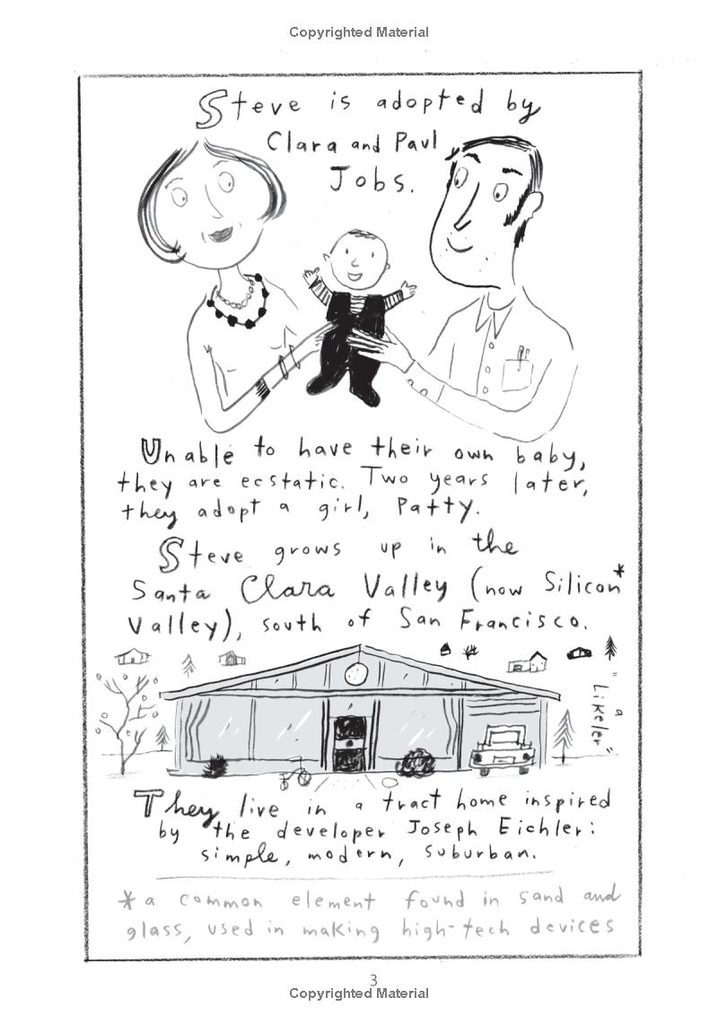 Copyrighted Material
Steve is adopted by
Clara and Paul
Jobs.
Unable to have their own baby,
they are ecstatic. Two years later,
they adopt a girl, Patty.
Steve grows up in the
Santa Clara Valley (now Silicon*
Valley), south of San Francisco.
"a
Likeler"
They live in a tract home inspired
by the developer Joseph Eichler:
simple, modern, suburban.
*a common element found in sand and
glass, used in making high-tech devices
3
Copyrighted Material